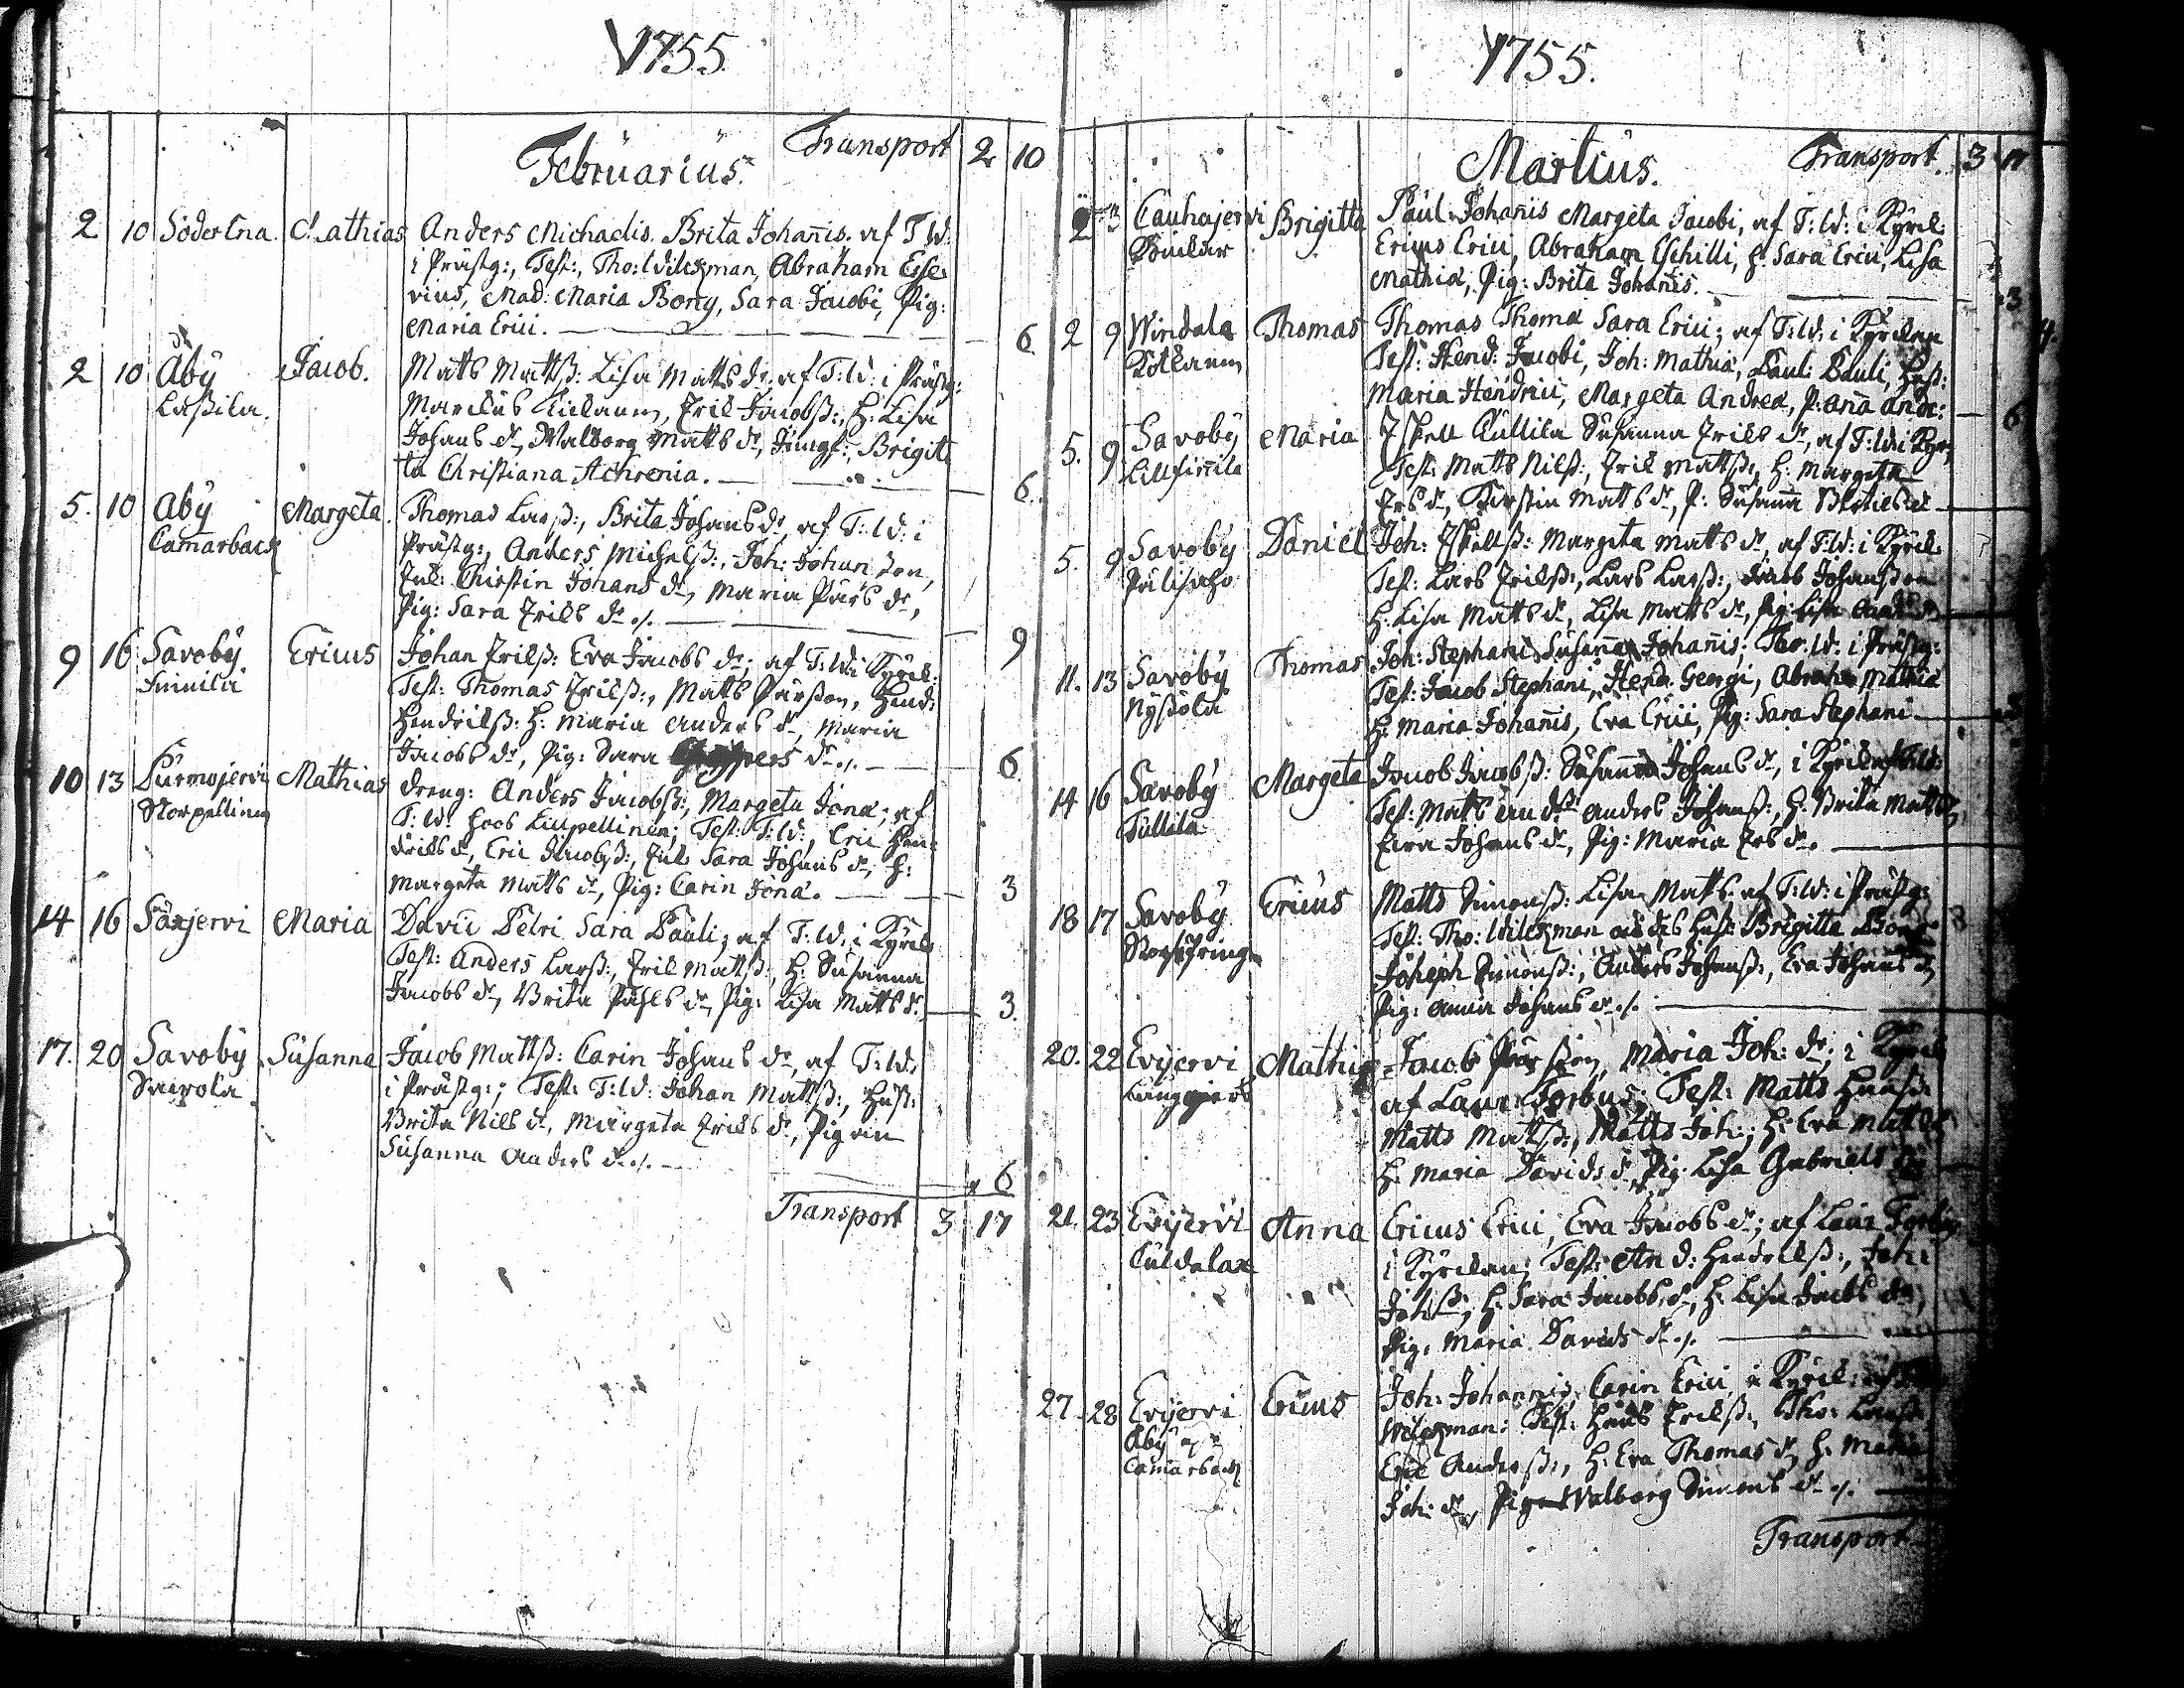 1755.
Februarius. Transport 2 10
2 10 Söder Ena Mathias Anders Michaelis. Brita Johannis. af T: W:
i Prästg:, Test:, Tho: Wilckman, Abraham Esse-
vius, Mad: Maria Bong, Sara Jacobi, Pig:
Maria Erici. 6
2 10 Åby Jacob. Matts Mattß: Lisa Matts dr. af T: W: i Prästg:
Laßila. Marcus, Eric Jacobß:, H: Lisa
Johans dr, Walborg Matts dr, Jungf:, Brigit-
ta Christiana Achrenia. 6.
5. 10 Åby Margeta. Thomas Larß:, Brita Johans dr, af T: W: i
Camarback Prästg:, Anders Michelß:, Joh: Johan son,
Chirstin Johans dr, Maria Pärs dr,
Pig: Sara Erics dr ./. 9
9 16 Savoby. Ericus Johan Ericß: Eva Jacobs dr; af T: W: i Kyrck:
Test: Thomas Ericß:, Matts Pärson, Hend:
Hendricß: H: Maria Anders dr, Maria
Jacobs dr, Pig: Sara dr ./. 6
10 13 Purmojervi Mathias Dreng: Anders Jacobß:, Margeta Jonæ; af
Storpellinen T: W: hoos Lillpellinen; Test: T: W:, Eric Hen-
dricks dr, Eric Jacobß:, Sara Johans dr, H:
Margeta Matts dr, Pig: Carin Jonæ. 3
14 16 Säxjervi Maria David Petri Sara Pauli; af T: W: i Kyrck
Test: Anders Larß:, Eric Mattß:, H: Susanna
Jacobs dr, Brita Påhls dr, Pig: Lisa Matts dr. 3.
17. 20 Savoby Susanna Jacob Mattß: Carin Johans dr, af T: W:
i Prästg:; Test: T: W: Johan Mattß:, Hust:
Brita Nils dr, Margeta Erics dr, Pigan
Susanna Anders dr ./. 6
Transport 3 17
1755.
Martius. Transport. 3 17
2 3 Cauhajervi Brigitta Paul: Johannis Margeta Jacobi, af T: W: i Kyrck:
Ericus Erici, Abraham Eschilli, H: Sara Erici, Lisa
Mathiæ, Pig: Brita Johannis. 3
2 9 Windala Thomas Thomas Thomæ Sara Erici; af T: W: i Kyrckan
Test: Hend: Jacobi, Joh: Mathiæ, Paul: Pauli, Hust:
Maria Hendrici, Margeta Andreæ, P: Anna Andr: 6
5. 9 Savoby Maria Eskell Cullila Susanna Erics dr, af T: W: i Kyr,
Test: Matts Nilß:, Eric Mattß:, H: Margeta
Ers dr, Kirstin Matts dr, P: Susanna
5. 9 Savoby Daniel Joh: Eskellß: Margeta Matts dr, af T: W: i Kyrck:
Pulisaho Test: Lars Ericß:, Lars Larß:, Jacob Johanßon
H: Lisa Matts dr, Lisa Matts dr, Pig: Lisa
11. 13 Savoby Thomas Joh: Stephani Susanna Johannis; Tho: W: i Prästg:
Nyßöla Test: Jacob Stephani, Hend: Georgi, Abrah: Mathiæ
H: Maria Johannis, Eva Erici, Pig: Sara Stephani
14 16 Savoby Margeta Jacob Jacobß: Susanna Johans dr, i Kyrck af T: W:
Tullila Test: Matts Andß: Anders Johanß:, H: Brita Matts
Johans dr, Pig: Maria Ers dr.
18 17 Savoby Ericus Matts Simonß: Lisa Matts. af T: W: i Prästg:
Test: Tho: Wilckman Hust: Brigitta Bong
Joseph Simonß:, Anders Johanß:, Eva Johans dr,
Pig: Anna Johans dr ./.
20. 22 Evijervi Mathias Jacob Pärson, Maria Joh: dr; i Kyrck
af Laur: Forbus; Test: Matts Hansß:
Matts Mattß:, Matts Joh:; H: Eva Matts
H: Maria Davids dr, Pig: Lisa Gabriels
21. 23 Evijervi Anna Ericus Erici, Eva Jacobs dr; af Laur Forbus
Culdalax i Kyrckan; Test: And: Hendricß:, Joh:
Johß:, H: Sara Jacobs dr, H: Lisa Jacobs dr,
Pig: Maria Davids dr ./.
27. 28 Evijervi Ericus Joh: Johannis Carin Erici i Kyrck:
Åby Wilckman: Test: Hans Ericß:, Tho: Larß:
Camarback Eric Anderß:, H: Eva Thomas dr, H: Maria
Joh: dr, Pigan Walborg Simons dr ./.
Transport